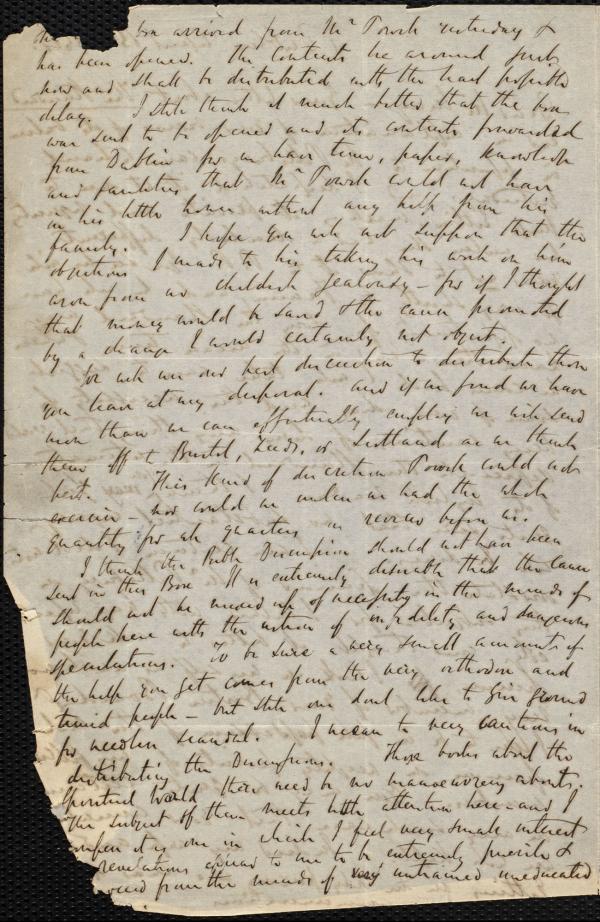 The box arrived from Mr Towsk yesterday &
has been opened. The contents lie around just
now and shall be distributed with the least possible
delay. I still think it much better that the box
was sent to be opened and its contents forwarded
from Dublin for we have time, papers, knowledge
and facilities that Mr Towsk could not have
in his little house without any help from his
family. I hope you will not suppose that the
objections I made to his taking his work on him
arose from no childish jealousy - for if I thought
that money would be saved & the cause promoted
by a change I would certainly not object.
for will use our best discretion to distribute those
you leave at my disposal. and if we find we have
more than we can effectually employ we will send
them off to Bristol, Leeds, or Scotland as we think
best. This kind of discretion Towsk could not
exercise - nor could we unless we had the whole
quantity for all quarters in review before us.
I think the Bible Discussion should not have been
sent in this Box. It is extremely desirable that the cause
should not be mixed up of necessity in the minds of
people here with the notion of infidelity and dangerous
speculations. To be sure a very small amount of
the help you get comes from the very orthodox and
timid people - but still one dont like to give ground
for needless scandal. I mean to very cautious in
distributing the Discussions. Those books about the
Spiritual World there need be no manoeuvring about.
The subject of them meets little attention here - and I
confess it is one in which I feel very small interest
revelations appear to me to be extremely puerile &
from the minds of very untrained uneducated